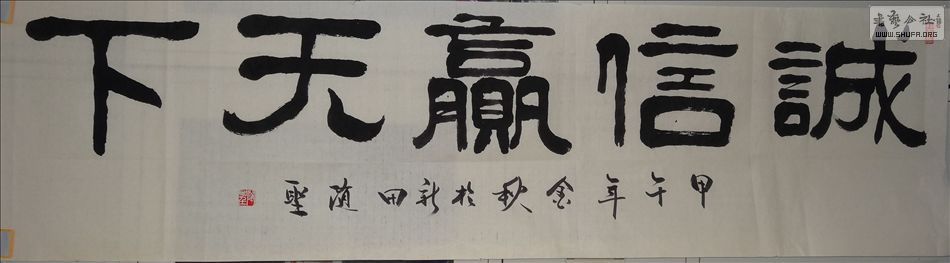 誠信贏天下
甲午年金秋於新田随聖
WWW.SHUFA.ORG